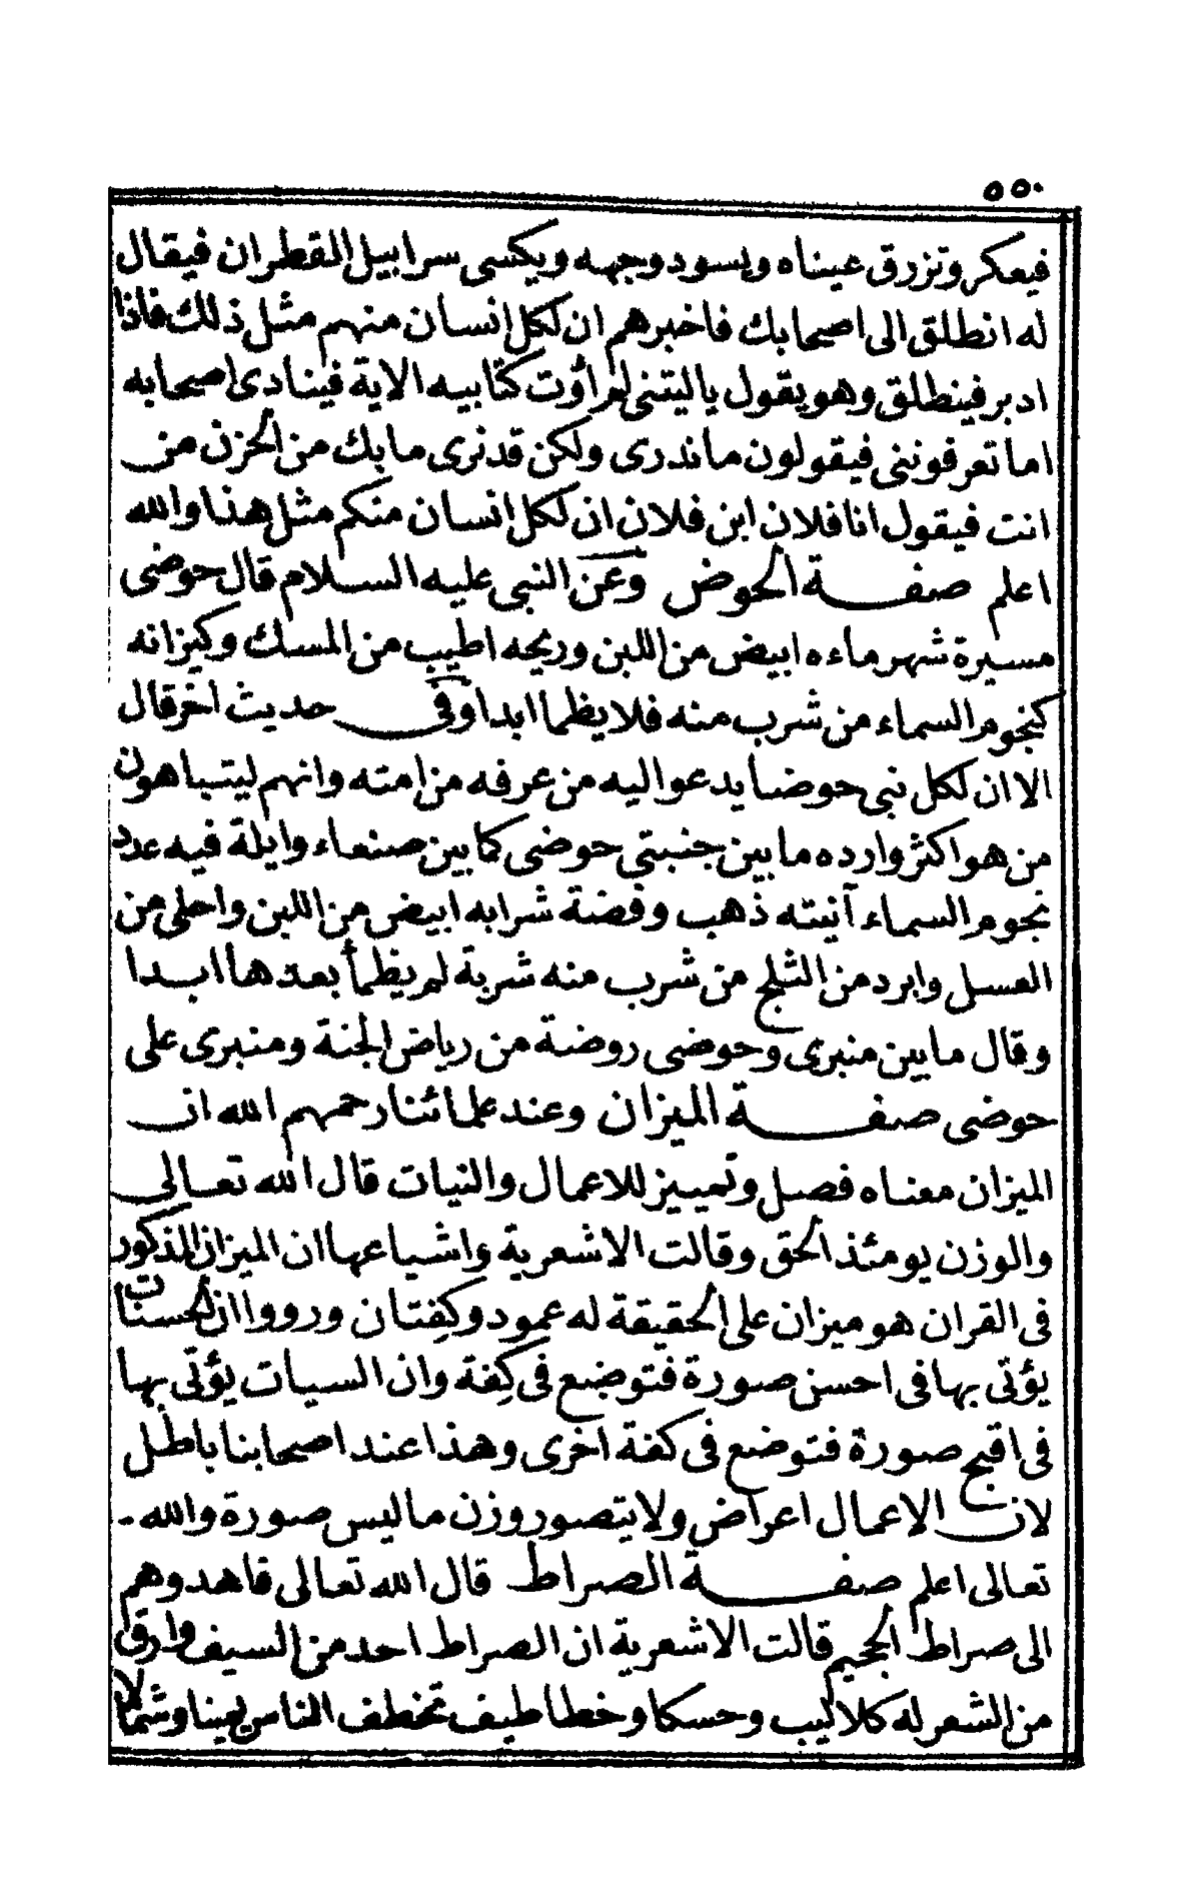 ٥٥٠
فيعكر وتزرق عيناه ويسود وجهه ويكسى سرابيل القطران فيقال
له انطلق الى اصحابك فاخبرهم ان لكل انسان منهم مثل ذلك فاذا
ادبر فينطلق وهو يقول ياليتنى لم اؤت كتابيه الاية فينادى اصحابه
اما تعرفوننى فيقولون ما ندرى ولكن قد نرى ما بك من الحزن من
انت فيقول انا فلان ابن فلان ان لكل انسان منكم مثل هذا والله
اعلم صفة الحوض وعن النبى عليه السلام قال حوضى
مسيرة شهر ماءه ابيض من اللبن وريحه اطيب من المسك وكيزانه
كنجوم السماء من شرب منه فلا يظما ابدا وفى حديث اخر قال
الا ان لكل نبى حوضا يدعوا اليه من عرفه من امته وانهم ليتباهون
من هو اكثر وارده ما بين جنبتي حوضى كما بين صنعاء وايلة فيه عدد
نجوم السماء آنيته ذهب وفضة شرابه ابيض من اللبن واحلى من
العسل وابرد من الثلج من شرب منه شربة لم يظمأ بعدها ابدا
وقال ما بين منبرى وحوضى روضة من رياض الجنة ومنبرى على
حوضى صفة الميزان وعند علمائنا رحمهم الله ان
الميزان معناه فصل وتمييز للاعمال والنيات قال الله تعالى
والوزن يومئذ الحق وقالت الاشعرية واشياعها ان الميزان المذكور
فى القران هو ميزان على الحقيقة له عمود وكفتان ورووا ان الحسنات
يؤتى بها فى احسن صورة فتوضع فى كفة وان السيات يؤتى بها
فى اقبح صورة فتوضع فى كفة اخرى وهذا عند اصحابنا باطل
لان الاعمال اعراض ولا يتصور وزن ما ليس صورة والله
تعالى اعلم صفة الصراط قال الله تعالى فاهدوهم
الى صراط الجحيم قالت الاشعرية ان الصراط احد من السيف وارق
من الشعر له كلاليب وحسكا وخطاطيف تخطف الناس يمينا وشمالا